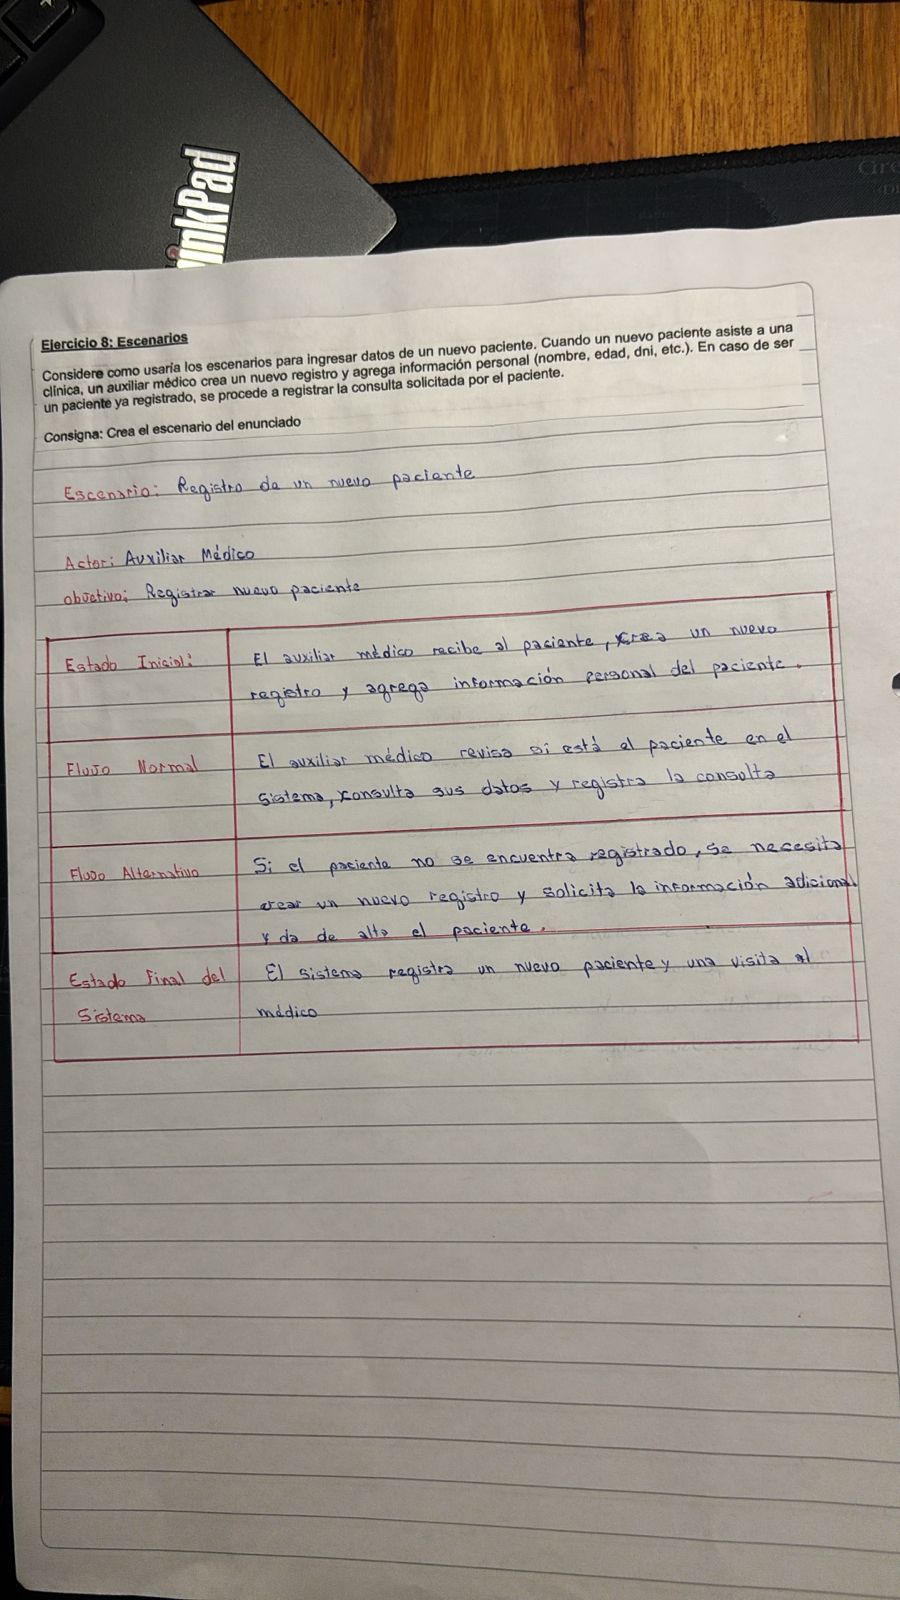 ThinkPad
Ejercicio 8: Escenarios
Considere como usaría los escenarios para ingresar datos de un nuevo paciente. Cuando un nuevo paciente asiste a una
clínica, un auxiliar médico crea un nuevo registro y agrega información personal (nombre, edad, dni, etc.). En caso de ser
un paciente ya registrado, se procede a registrar la consulta solicitada por el paciente.
Consigna: Crea el escenario del enunciado
Escenario: Registro de un nuevo paciente
Actor: Auxiliar Médico
objetivo: Registrar nuevo paciente
Estado Inicial: El auxiliar médico recibe al paciente, crea un nuevo
registro y agrega información personal del paciente.
Flujo Normal El auxiliar médico revisa si está el paciente en el
sistema, consulta sus datos y registra la consulta
Flujo Alternativo Si el paciente no se encuentra registrado, se necesita
crear un nuevo registro y solicita la información adicional
y da de alta el paciente.
Estado Final del El sistema registra un nuevo paciente y una visita al
Sistema médico